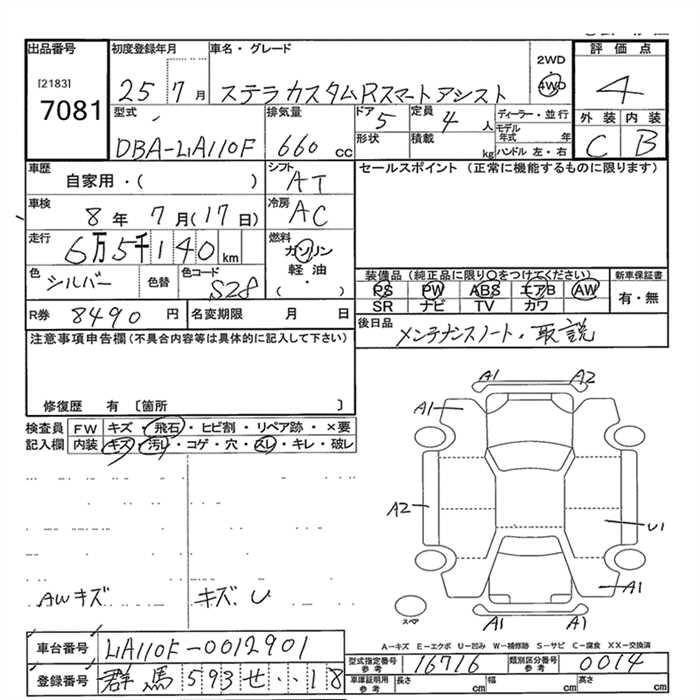 出品番号 初度登録年月 車名・グレード 2WD 評価点
[2183] 7081 25年 7月 ステラカスタムRスマートアシスト 4WD 4
型式 排気量 ドア 5 定員 4人 ディーラー・並行 外装 内装
DBA-LA110F 660cc 形状 積載 kg モデル年式 年 ハンドル 左・右 C B
車歴 自家用・( ) シフト AT セールスポイント (正常に機能するものに限ります)
車検 8年 7月(17日) 冷房 AC
走行 6万5千140km 燃料 ガソリン
軽油
・
( )
色 シルバー 色替 色コード S28
装備品 (純正品に限り○をつけてください) 新車保証書
PS PW ABS エアB AW 有・無
SR ナビ TV カワ
R券 8490円 名変期限 月 日 後日品 メンテナンスノート・取説
注意事項申告欄(不具合内容等は具体的に記入して下さい)
修復歴 有 〔箇所 〕
検査員 FW キズ・飛石・ヒビ割・リペア跡・×要
記入欄 内装 キズ・汚レ・コゲ・穴・スレ・キレ・破レ
A1 A2
A1
A2 U1
A1
A1 A1
スペア
AWキズ キズ.U
A-キズ E-エクボ U-凹み W-補修跡 S-サビ C-腐食 XX-交換済
車台番号 LA110F-0012901
型式指定番号 参考 16716 類別区分番号 参考 0014
登録番号 群馬593せ・・18
車庫証明用 参考 長さ cm 幅 cm 高さ cm